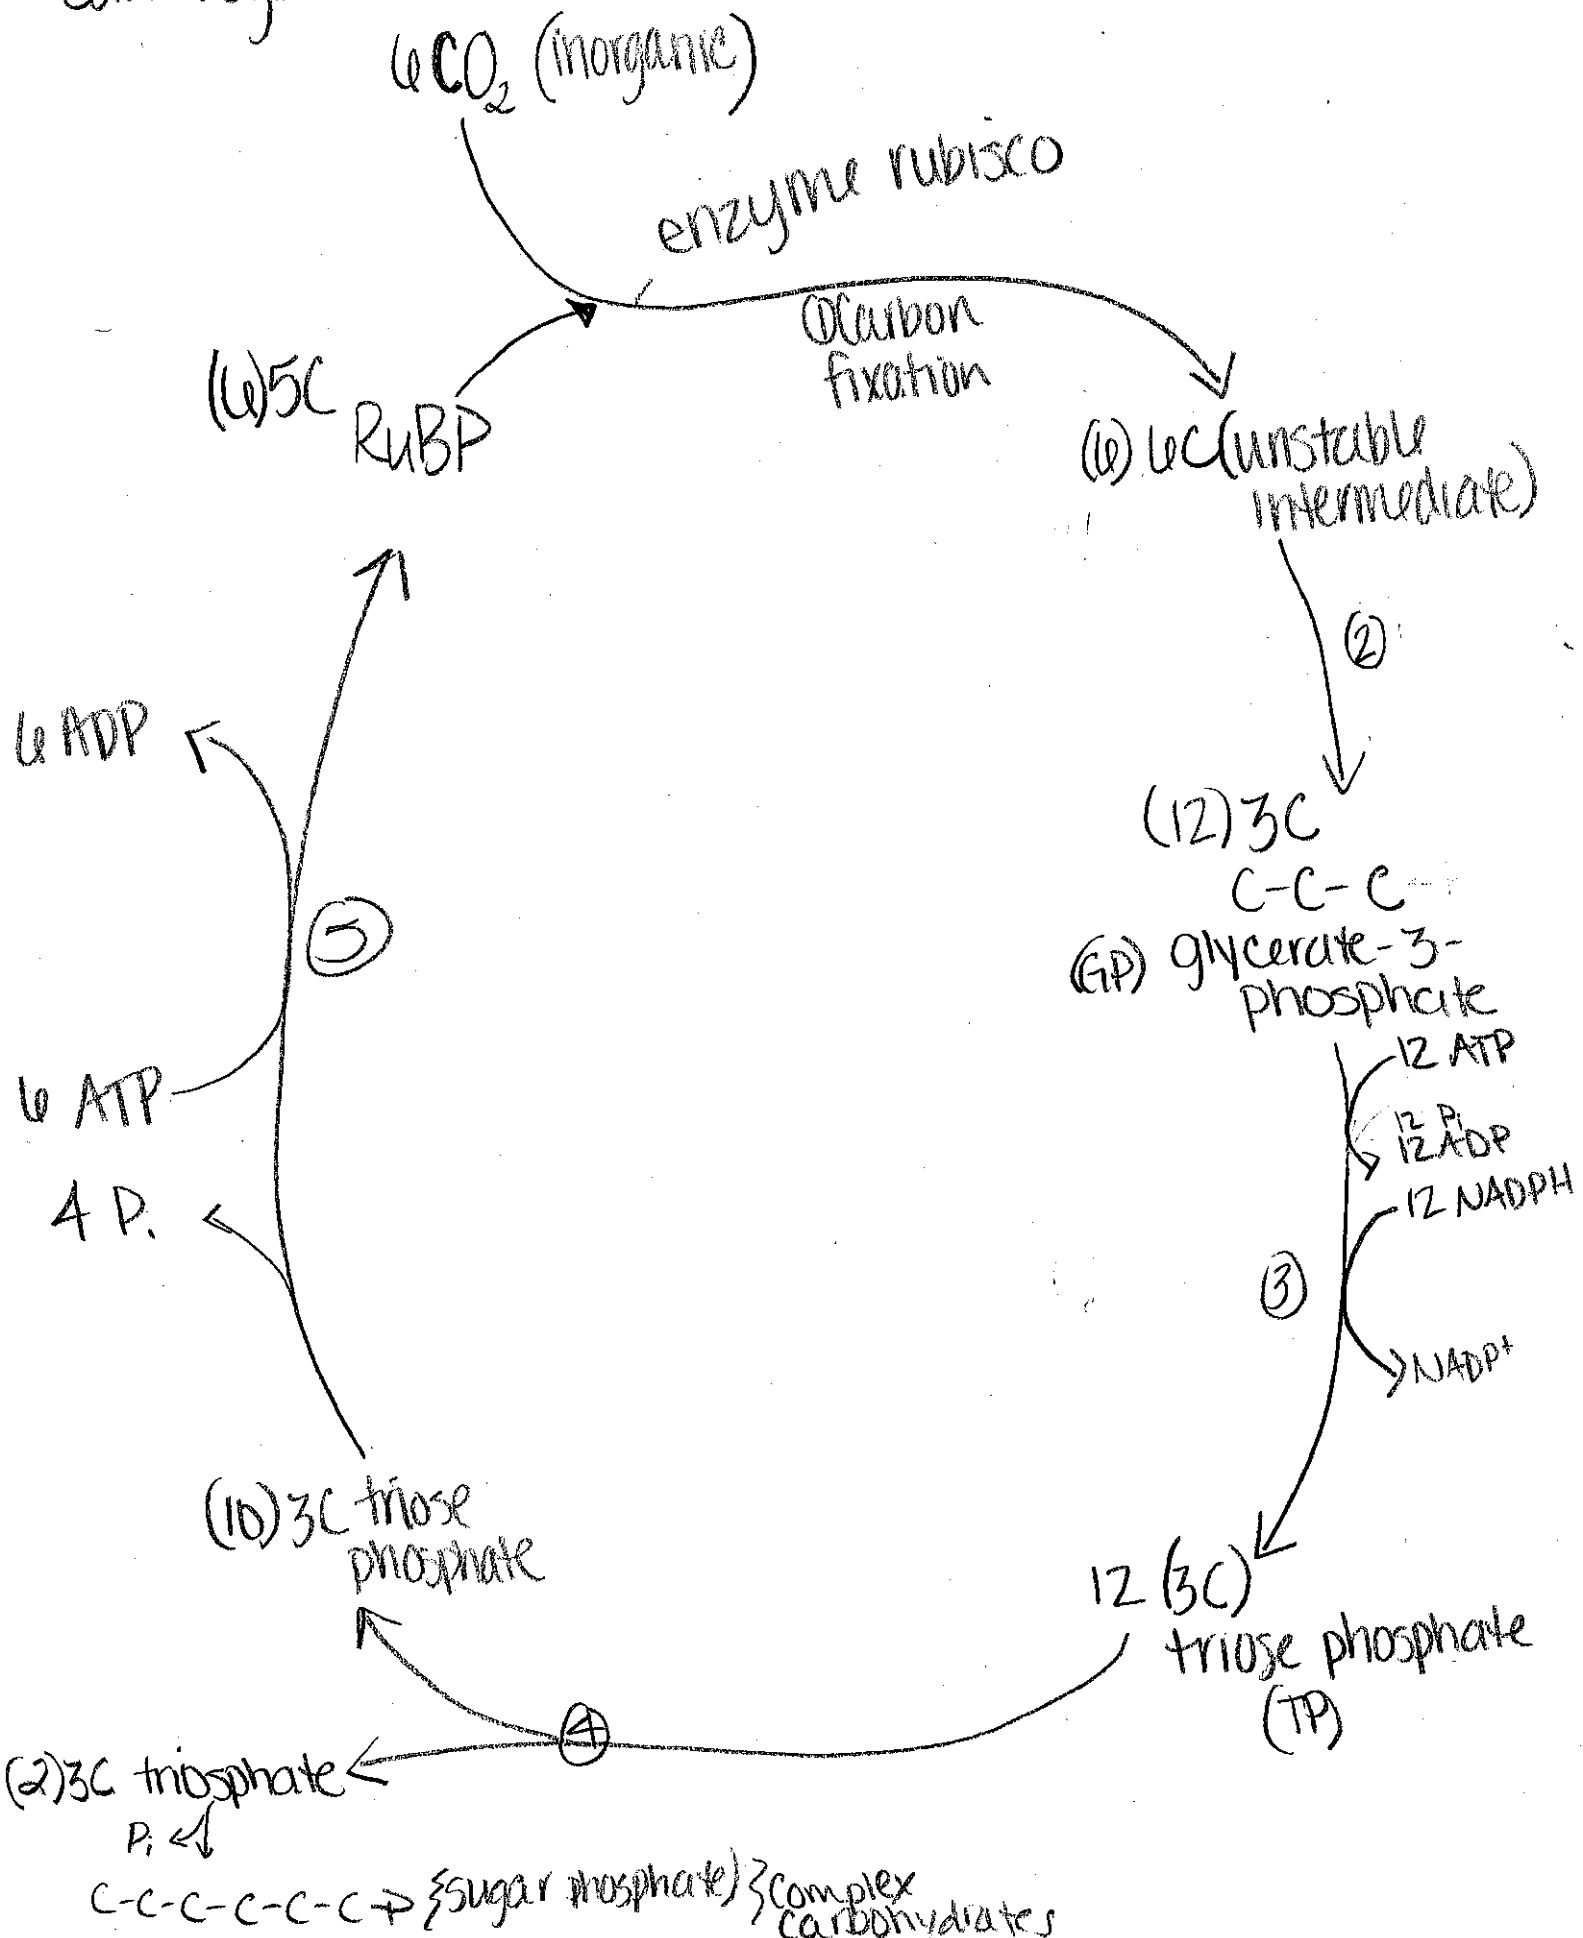 6CO₂ (inorganic)
enzyme rubisco
①Carbon
fixation
(6)5C
RuBP
(6) 6C(unstable
intermediate)
②
6 ADP
(12) 3C
C-C-C
⑤
(GP) glycerate-3-
phosphate
12 ATP
6 ATP
12 Pi
12 ADP
4 Pi
12 NADPH
③
NADP+
(10) 3C triose
phosphate
12 (3C)
triose phosphate
(TP)
④
(2)3C triosphate
Pi
C-C-C-C-C-C-P {sugar phosphate) } complex
carbohydrates